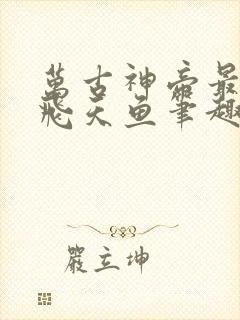 萬古神帝最
飛天魚筆趣
嚴立坤